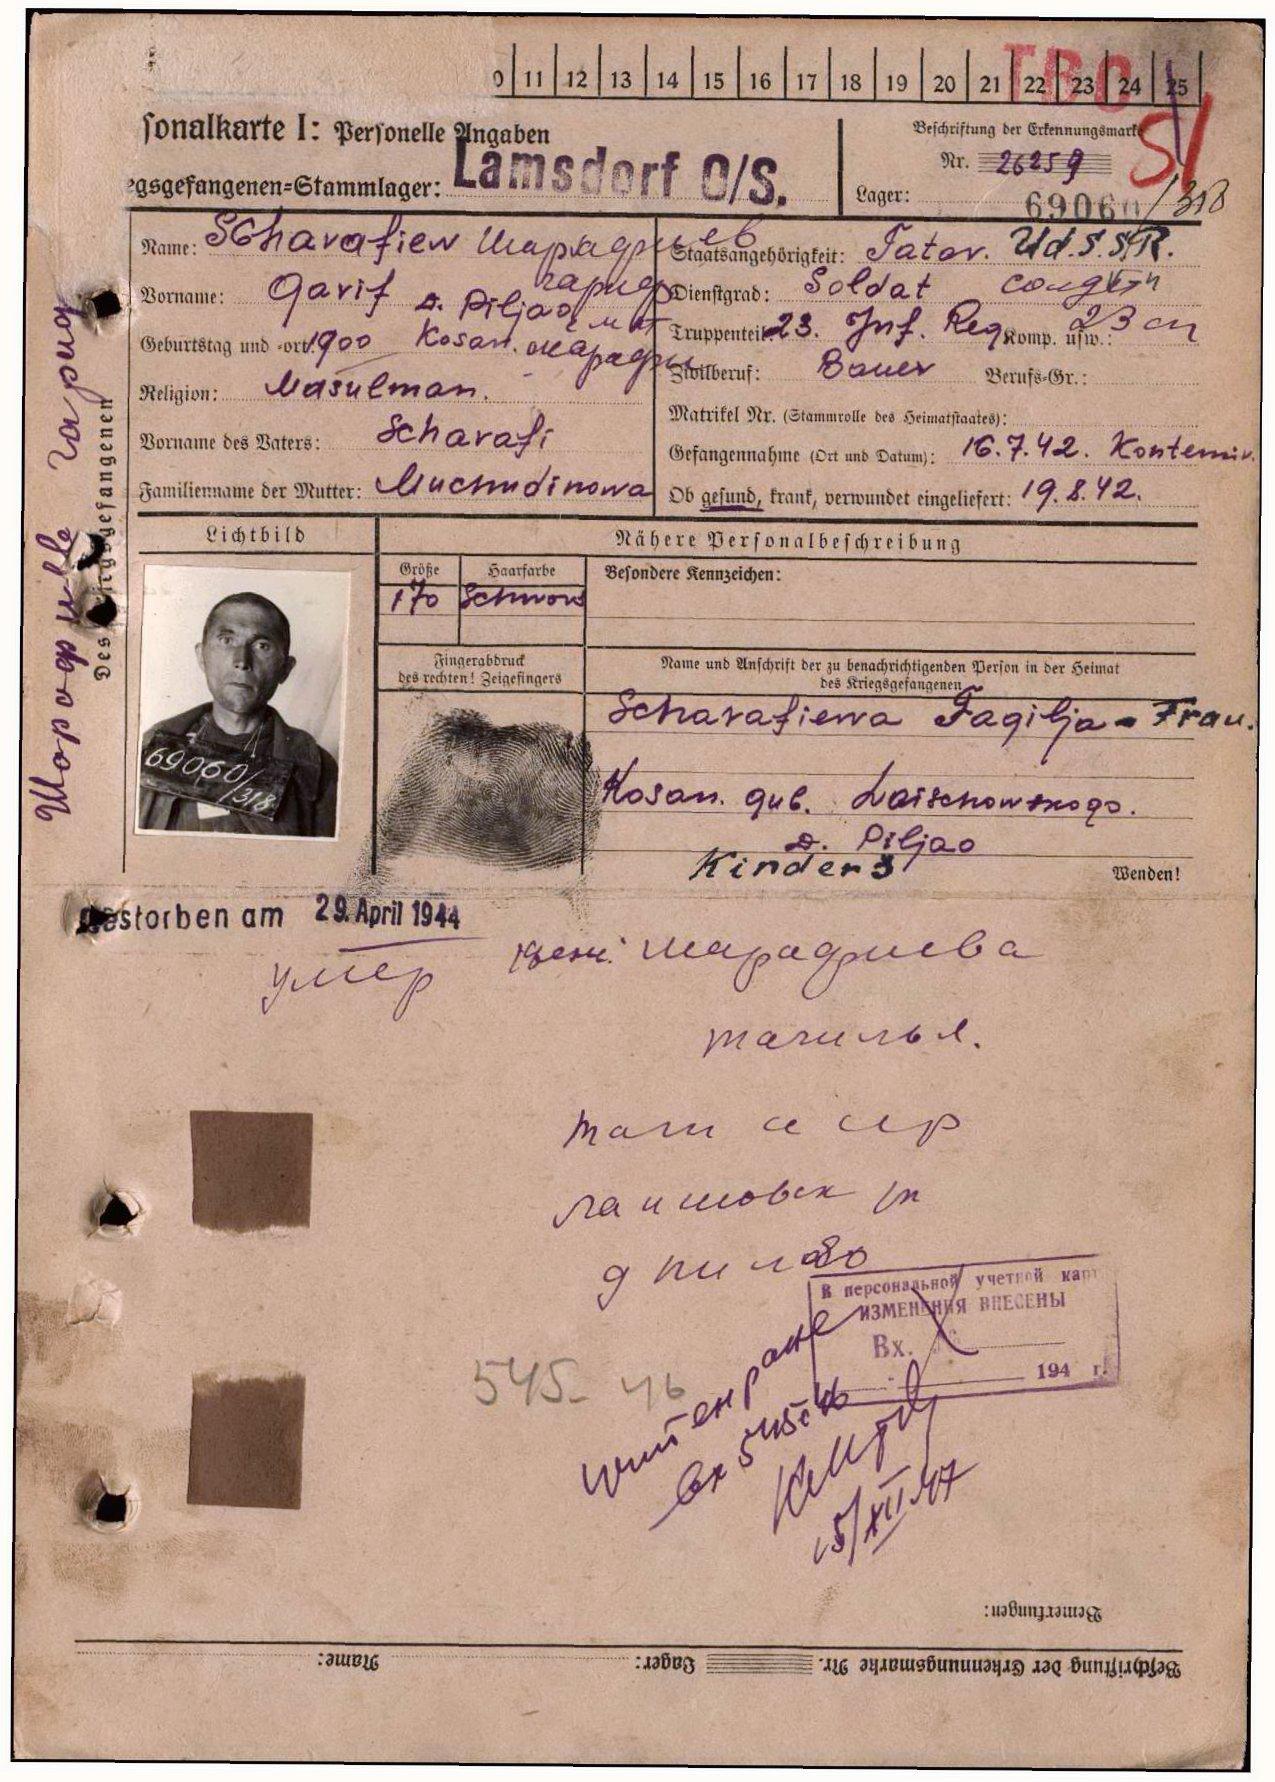 0 11 12 13 14 15 16 17 18 19 20 21 22 23 24 25
TBC
sonalkarte I: Personelle Angaben
egsgefangenen=Stammlager: Lamsdorf O/S.
Beschriftung der Erkennungsmarke
Nr. 26259
Lager: 69060/318
Name: SCharafiew Шарафиев
Vorname: Garif гариф
D. Piljao
Geburtstag und -ort: 1900 Kosan.
Religion: Musulman.
Vorname des Vaters: Scharafi
Familienname der Mutter: Muchudinowa
Staatsangehörigkeit: Tatar. Ud.S.S.R.
Dienstgrad: Soldat солдат
Truppenteil: 23. Inf. Reg Komp. usw.: 23 сп
Zivilberuf: Bauer Berufs-Gr.:
Matrikel Nr. (Stammrolle des Heimatstaates):
Gefangennahme (Ort und Datum): 16.7.42. Kontemir.
Ob gesund, krank, verwundet eingeliefert: 19.8.42.
Шарафиев Гариф
Des Kriegsgefangenen
Lichtbild
69060/318
Nähere Personalbeschreibung
Größe Haarfarbe Besondere Kennzeichen:
170 Schwarz
Fingerabdruck
des rechten! Zeigefingers
Name und Anschrift der zu benachrichtigenden Person in der Heimat
des Kriegsgefangenen
Scharafiewa Tagilja - Frau.
Kosan. gub. Laischowskogo.
D. Piljao
Kinder 3
Wenden!
gestorben am 29. April 1944
умер жена: шарафиева
тагилья.
тат сср
лаишовск
д пилао
В персональной учетной карт
ИЗМЕНЕНИЯ ВНЕСЕНЫ
Вх.
194 г.
545- 46
вх 545с46
15/XII 47
Bemerkungen:
Beschriftung der Erkennungsmarke Nr. Lager: Name: